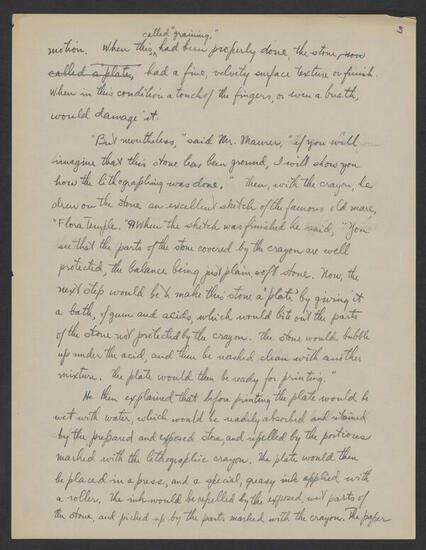 3
called "graining,"
motion. When this, had been properly done, the stone, now
called a plate, had a fine, velvety surface texture or finish.
When in this condition a touch of the fingers, or even a breath,
would damage it.
"But nevertheless," said Mr. Maurer, "if you will
imagine that this stone has been ground, I will show you
how the lithographing was done." Then, with the crayon, he
drew on the stone an excellent sketch of the famous old mare,
"Flora Temple." When the sketch was finished he said, "You
see that the parts of the stone covered by the crayon are well
protected, the balance being just plain soft stone. Now, the
next step would be to make this stone a 'plate' by giving it
a bath, of gum and acids, which would bite out the parts
of the stone not protected by the crayon. The stone would bubble
up under the acid, and then be washed clean with another
mixture. The plate would then be ready for printing."
He then explained that before printing the plate would be
wet with water, which would be readily absorbed and retained
by the prepared and exposed stone, and repelled by the portions
marked with the lithographic crayon. The plate would then
be placed in a press, and a special, greasy ink applied with
a roller. The ink would be repelled by the exposed, wet parts of
the stone, and picked up by the parts marked with the crayon. The paper